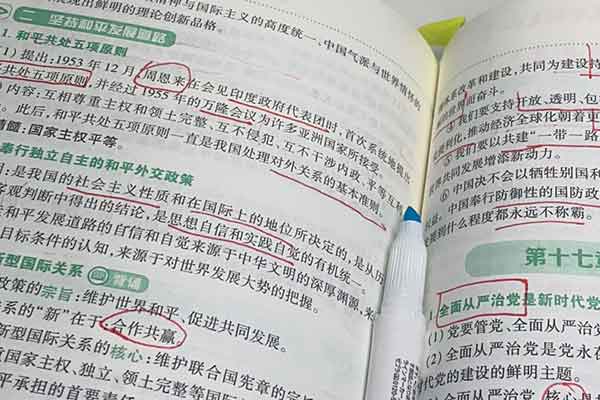 展现出鲜明的理论创新品格。
精神与国际主义的高度统一、中国气派与世界情怀的
二 坚持和平发展道路
1. 和平共处五项原则
(1) 提出：1953年12月，周恩来在会见印度政府代表团时，首次系统地提出
共处五项原则，并经过1955年的万隆会议为许多亚洲国家所接受。
内容：互相尊重主权和领土完整、互不侵犯、互不干涉内政、平等互利
。此后，和平共处五项原则一直是我国处理对外关系的基本准则。
精髓：国家主权平等。
奉行独立自主的和平外交政策
：是我国的社会主义性质和在国际上的地位所决定的，是从历
客观判断中得出的结论，是思想自信和实践自觉的有机统一。
和平发展道路的自信和自觉来源于中华文明的深厚渊源，来
目标条件的认知，来源于对世界发展大势的把握。
新型国际关系 背诵
政策的宗旨：维护世界和平、促进共同发展。
关系的“新”在于：合作共赢。
新型国际关系的核心：维护联合国宪章的宗旨
国家主权、独立、领土完整等国际
平承担的首要责任
体系改革和建设，共同为建设持
而奋斗。
我们要支持开放、透明、包
利化，推动经济全球化朝着更
⑤ 我们要以共建“一带一路
共同发展增添新动力。
⑥ 中国决不会以牺牲别国利
中国奉行防御性的国防政
展到什么程度都永远不称霸。
第十七章
1. 全面从严治党是新时代党
(1) 党要管党、全面从严
(2) 全面从严治党是党永
代党的建设的鲜明主题。
全面从严治党，核心是